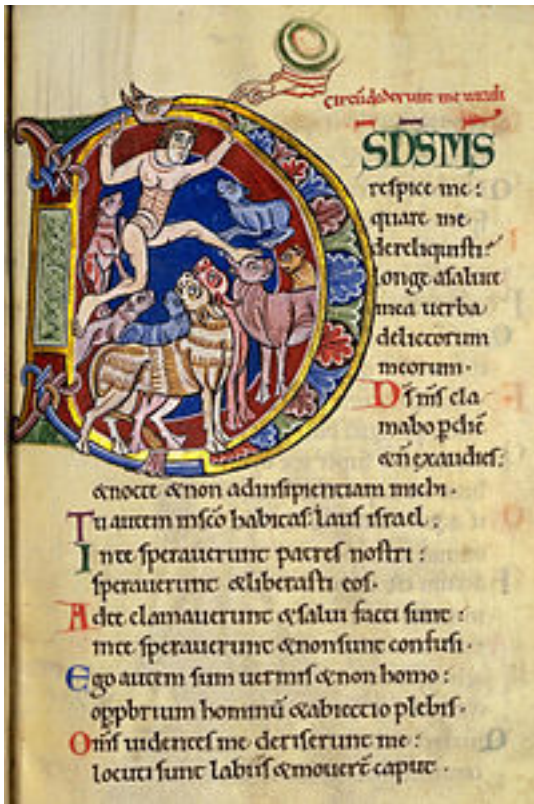 Circu(m)dederunt me uituli
DS DS MS
respice me:
quare me
dereliquisti?
longe a salute
mea uerba
delictorum
meorum.
Ds ms cla
mabo p diē
& ñ exaudies:
& nocte & non ad insipientiam michi.
Tu autem in sc̄o habitas: laus israel.
In te sperauerunt patres nostri:
sperauerunt & liberasti eos.
Ad te clamauerunt & salui facti sunt:
in te sperauerunt & non sunt confusi.
Ego autem sum uermis & non homo:
opprbrium hominū & abiectio plebis.
Oms uidentes me deriserunt me:
locuti sunt labiis & mouert̄ caput.